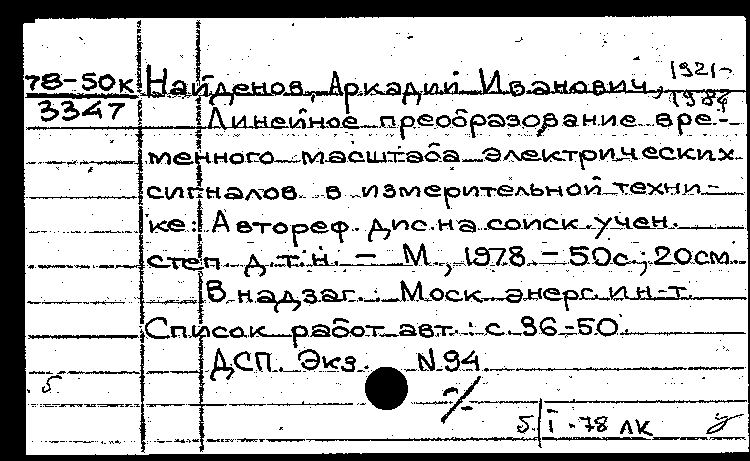 78-50к
3347
Найденов, Аркадий Иванович, 1921-
Линейное преобразование вре-
менного масштаба электрических
сигналов в измерительной техни-
ке: Автореф. дис. на соиск. учен.
степ. д.т.н. - М., 1978. - 50с.; 20см.
В надзаг.: Моск. энерг. ин-т.
Список работ авт.: с. 36-50.
ДСП. Экз. N 94.
б
5 I-78 ЛК